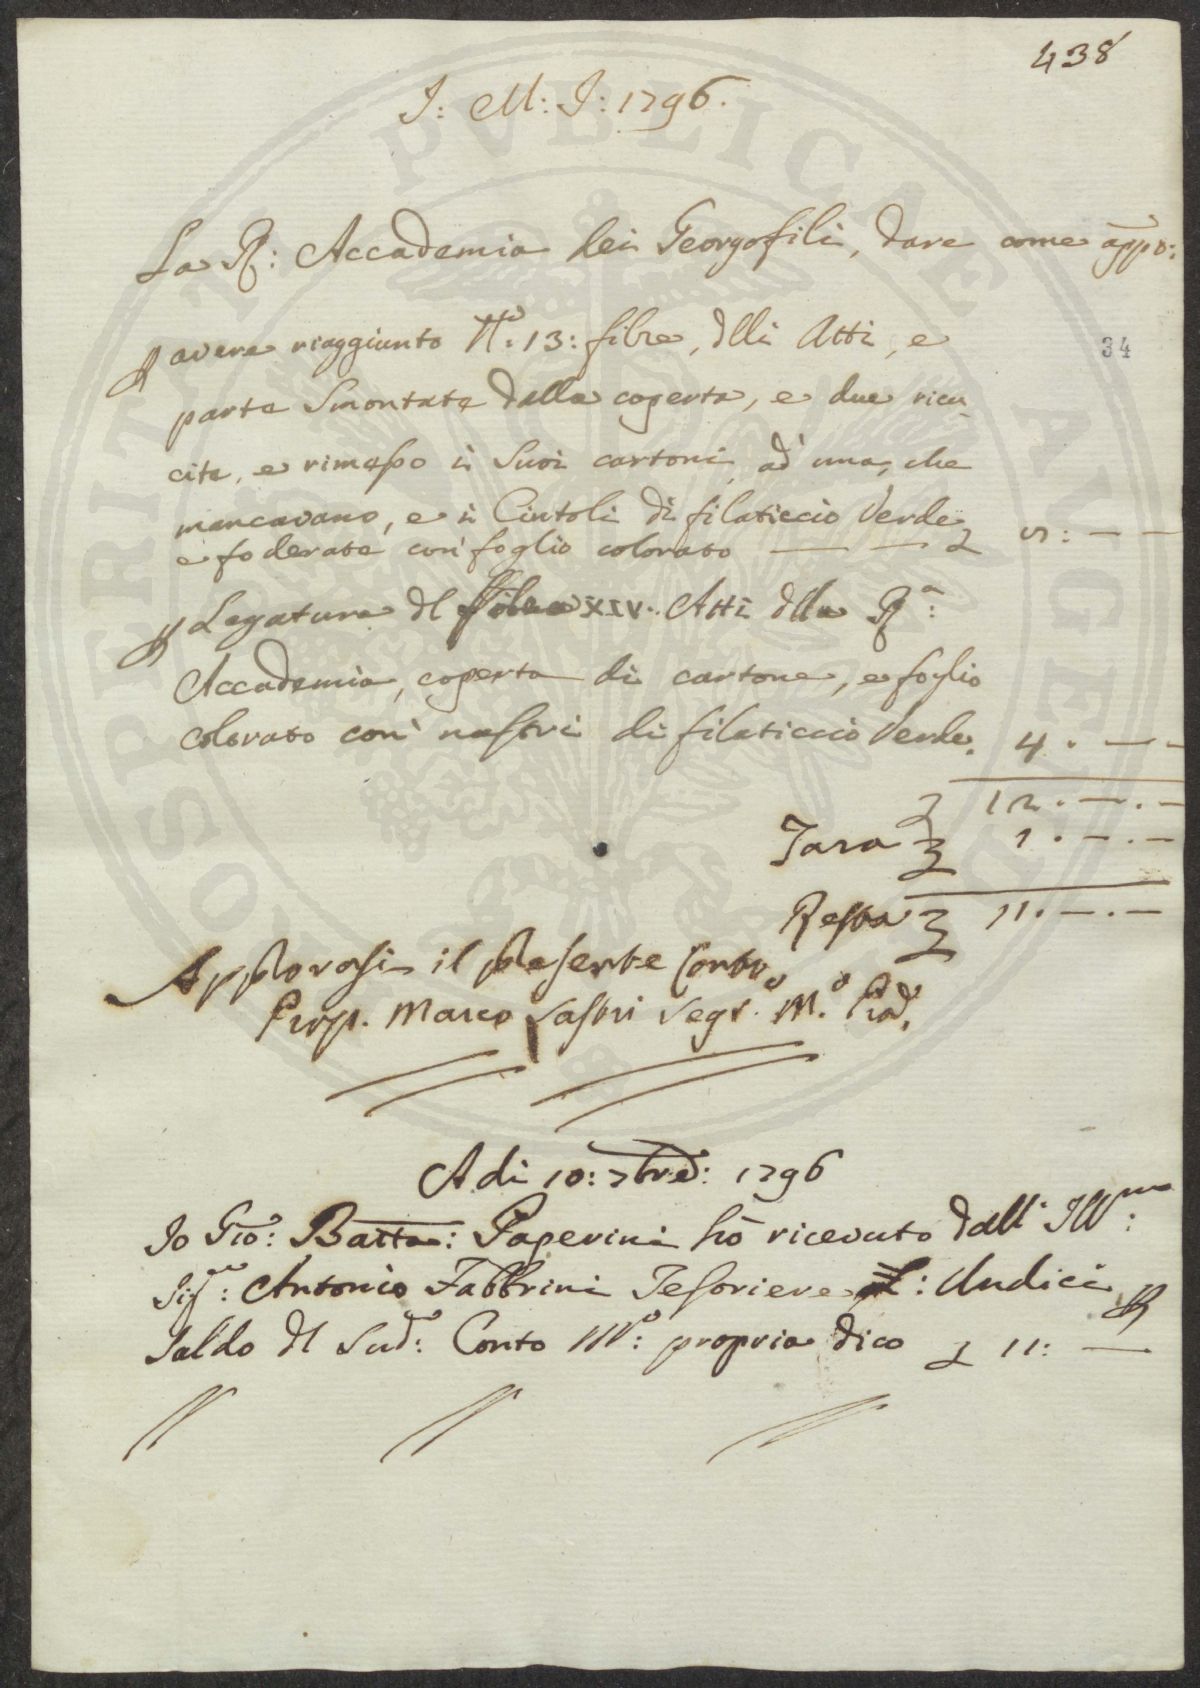 438
J: M: J: 1796.
La R: Accademia dei Georgofili, dare come app.o:
34
P avere riaggiunto N.o 13: filze, dlli Atti, e
parte Smontate dalla coperta, e due ricu,
cite, e rimesso i Suoi cartoni ad una, che
mancavano, e i Cintoli di filaticcio Verde
e foderate con foglio colorato — — £ 8: — —
P Legatura dl XIV.. Atti dlla R.a:
Accademia, coperta di cartone, e foglio
colorato con nastri di filaticcio Verde. 4. — —
£ 12. —. —
Tara £ 1. —. —
Resta £ 11. —. —
Approvasi il presente Conto
Marco Lastri Segr. M.o
Adi 10: 7bre: 1796
Io Gio: Batta: Paperini hò ricevuto dall' Ill.mo:
Sig.re: Antonio Fabbrini Tesoriere L: Undici P
Saldo dl Sud.o: Conto M.o: propria dico £ 11: —